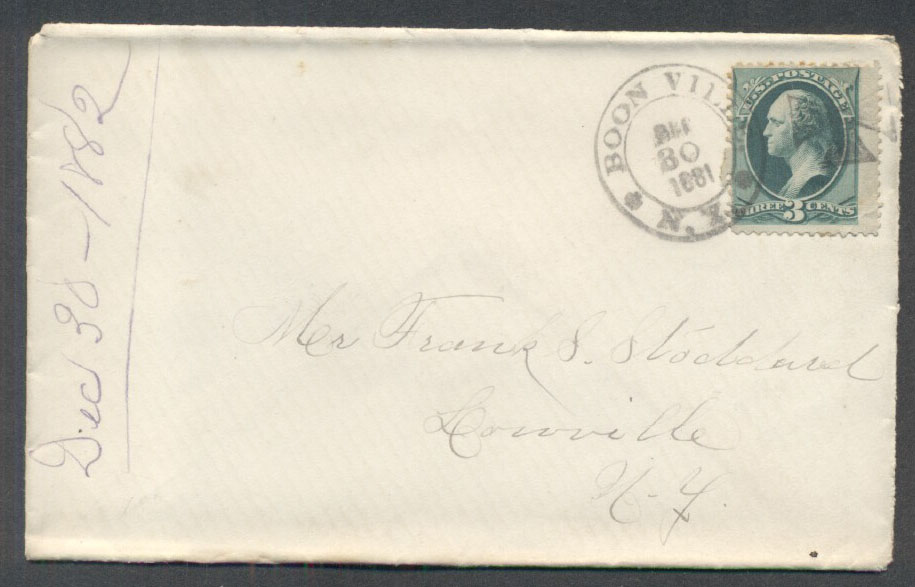 Dec 30 - 1882
BOON VILL
N.Y.
DEC
30
1881
U.S. POSTAGE
THREE 3 CENTS
Mr Frank S. Stoddard
Lowville
N-Y.